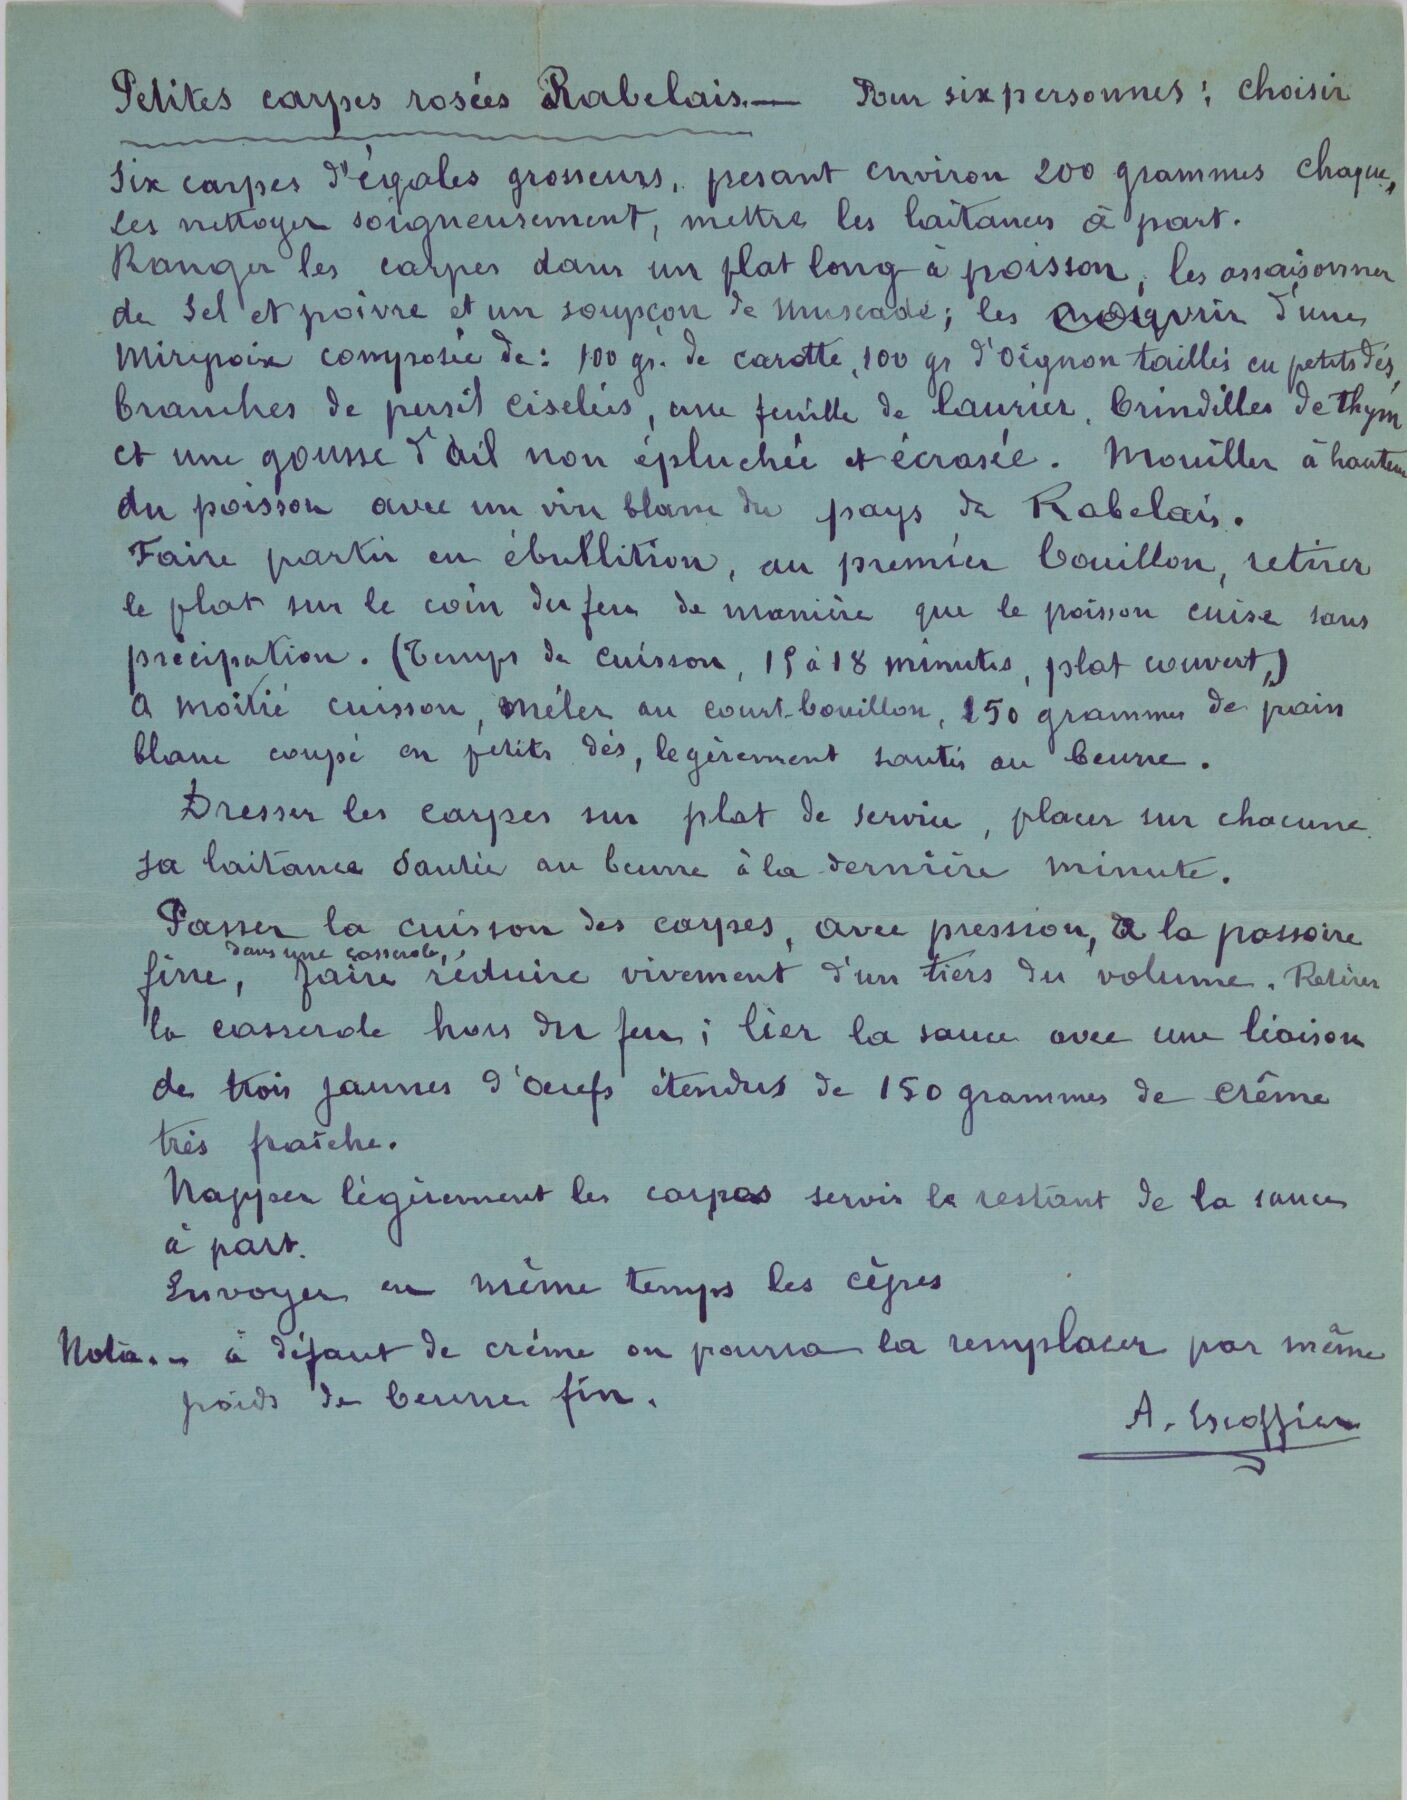 Petites carpes rosées Rabelais. — Pour six personnes : choisir
six carpes d'égales grosseurs, pesant environ 200 grammes chaque,
les nettoyer soigneusement, mettre les laitances à part.
Ranger les carpes dans un plat long à poisson, les assaisonner
de sel et poivre et un soupçon de muscade ; les couvrir d'une
Mirepoix composée de : 100 gr. de carotte, 100 gr d'oignon taillés en petits dés,
branches de persil ciselées, une feuille de laurier, brindilles de thym
et une gousse d'ail non épluchée et écrasée. Mouiller à hauteur
du poisson avec un vin blanc du pays de Rabelais.
Faire partir en ébullition, au premier bouillon, retirer
le plat sur le coin du feu de manière que le poisson cuise sans
précipation. (Temps de cuisson, 15 à 18 minutes, plat couvert,)
A moitié cuisson, mêler au court-bouillon, 150 grammes de pain
blanc coupé en petits dés, legèrement sautés au beurre.
Dresser les carpes sur plat de service, placer sur chacune
sa laitance sautée au beurre à la dernière minute.
Passer la cuisson des carpes, avec pression, à la passoire
dans une casserole,
fine, faire réduire vivement d'un tiers du volume. Retirer
la casserole hors du feu ; lier la sauce avec une liaison
de trois jaunes d'oeufs étendus de 150 grammes de crême
très fraîche.
Napper légèrement les carpes servir le restant de la sauce
à part.
Envoyer en même temps les cêpes
Nota. - à défaut de crême on pourra la remplacer par même
poids de beurre fin.
A. Escoffier